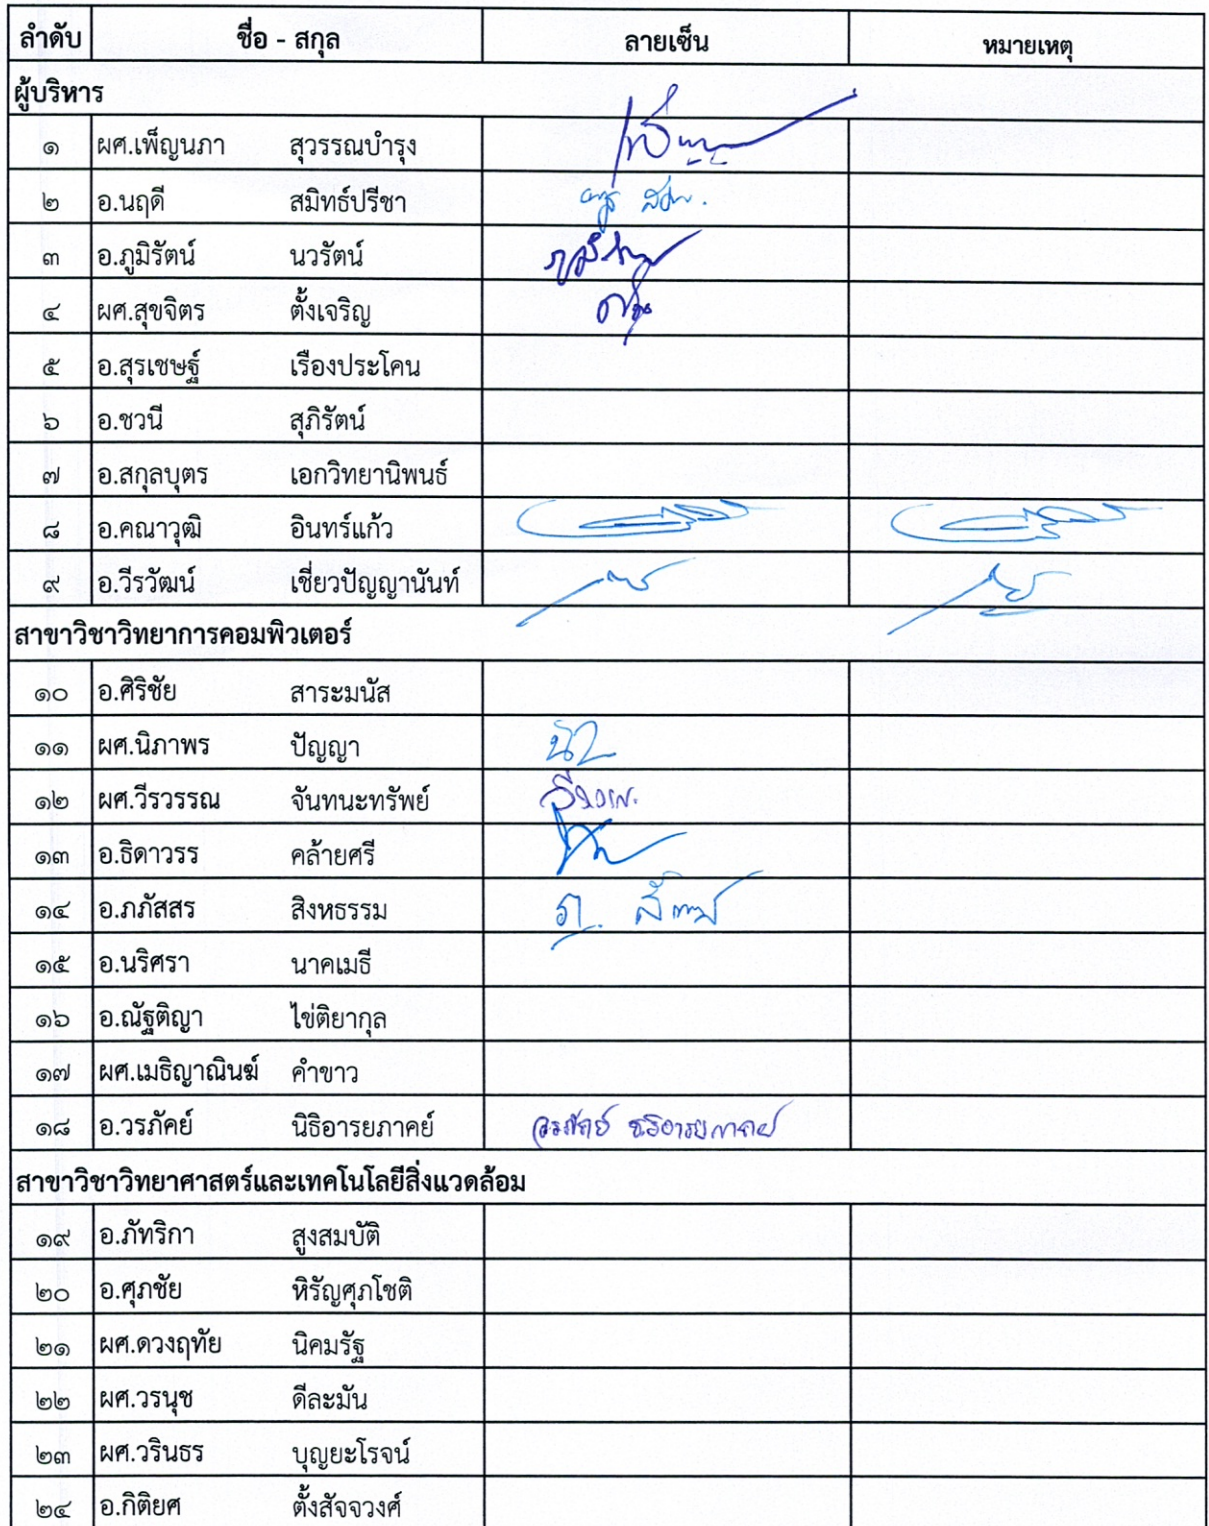 ลำดับ ชื่อ - สกุล ลายเซ็น หมายเหตุ
ผู้บริหาร
๑ ผศ.เพ็ญนภา สุวรรณบำรุง
๒ อ.นฤดี สมิทธ์ปรีชา
๓ อ.ภูมิรัตน์ นวรัตน์
๔ ผศ.สุขจิตร ตั้งเจริญ
๕ อ.สุรเชษฐ์ เรืองประโคน
๖ อ.ชวนี สุภิรัตน์
๗ อ.สกุลบุตร เอกวิทยานิพนธ์
๘ อ.คณาวุฒิ อินทร์แก้ว
๙ อ.วีรวัฒน์ เชี่ยวปัญญานันท์
สาขาวิชาวิทยาการคอมพิวเตอร์
๑๐ อ.ศิริชัย สาระมนัส
๑๑ ผศ.นิภาพร ปัญญา
๑๒ ผศ.วีรวรรณ จันทนะทรัพย์
๑๓ อ.ธิดาวรร คล้ายศรี
๑๔ อ.ภภัสสร สิงหธรรม
๑๕ อ.นริศรา นาคเมธี
๑๖ อ.ณัฐติญา ไข่ติยากุล
๑๗ ผศ.เมธิญาณินฆ์ คำขาว
๑๘ อ.วรภัคย์ นิธิอารยภาคย์
สาขาวิชาวิทยาศาสตร์และเทคโนโลยีสิ่งแวดล้อม
๑๙ อ.ภัทริกา สูงสมบัติ
๒๐ อ.ศุภชัย หิรัญศุภโชติ
๒๑ ผศ.ดวงฤทัย นิคมรัฐ
๒๒ ผศ.วรนุช ดีละมัน
๒๓ ผศ.วรินธร บุญยะโรจน์
๒๔ อ.กิติยศ ตั้งสัจจวงศ์